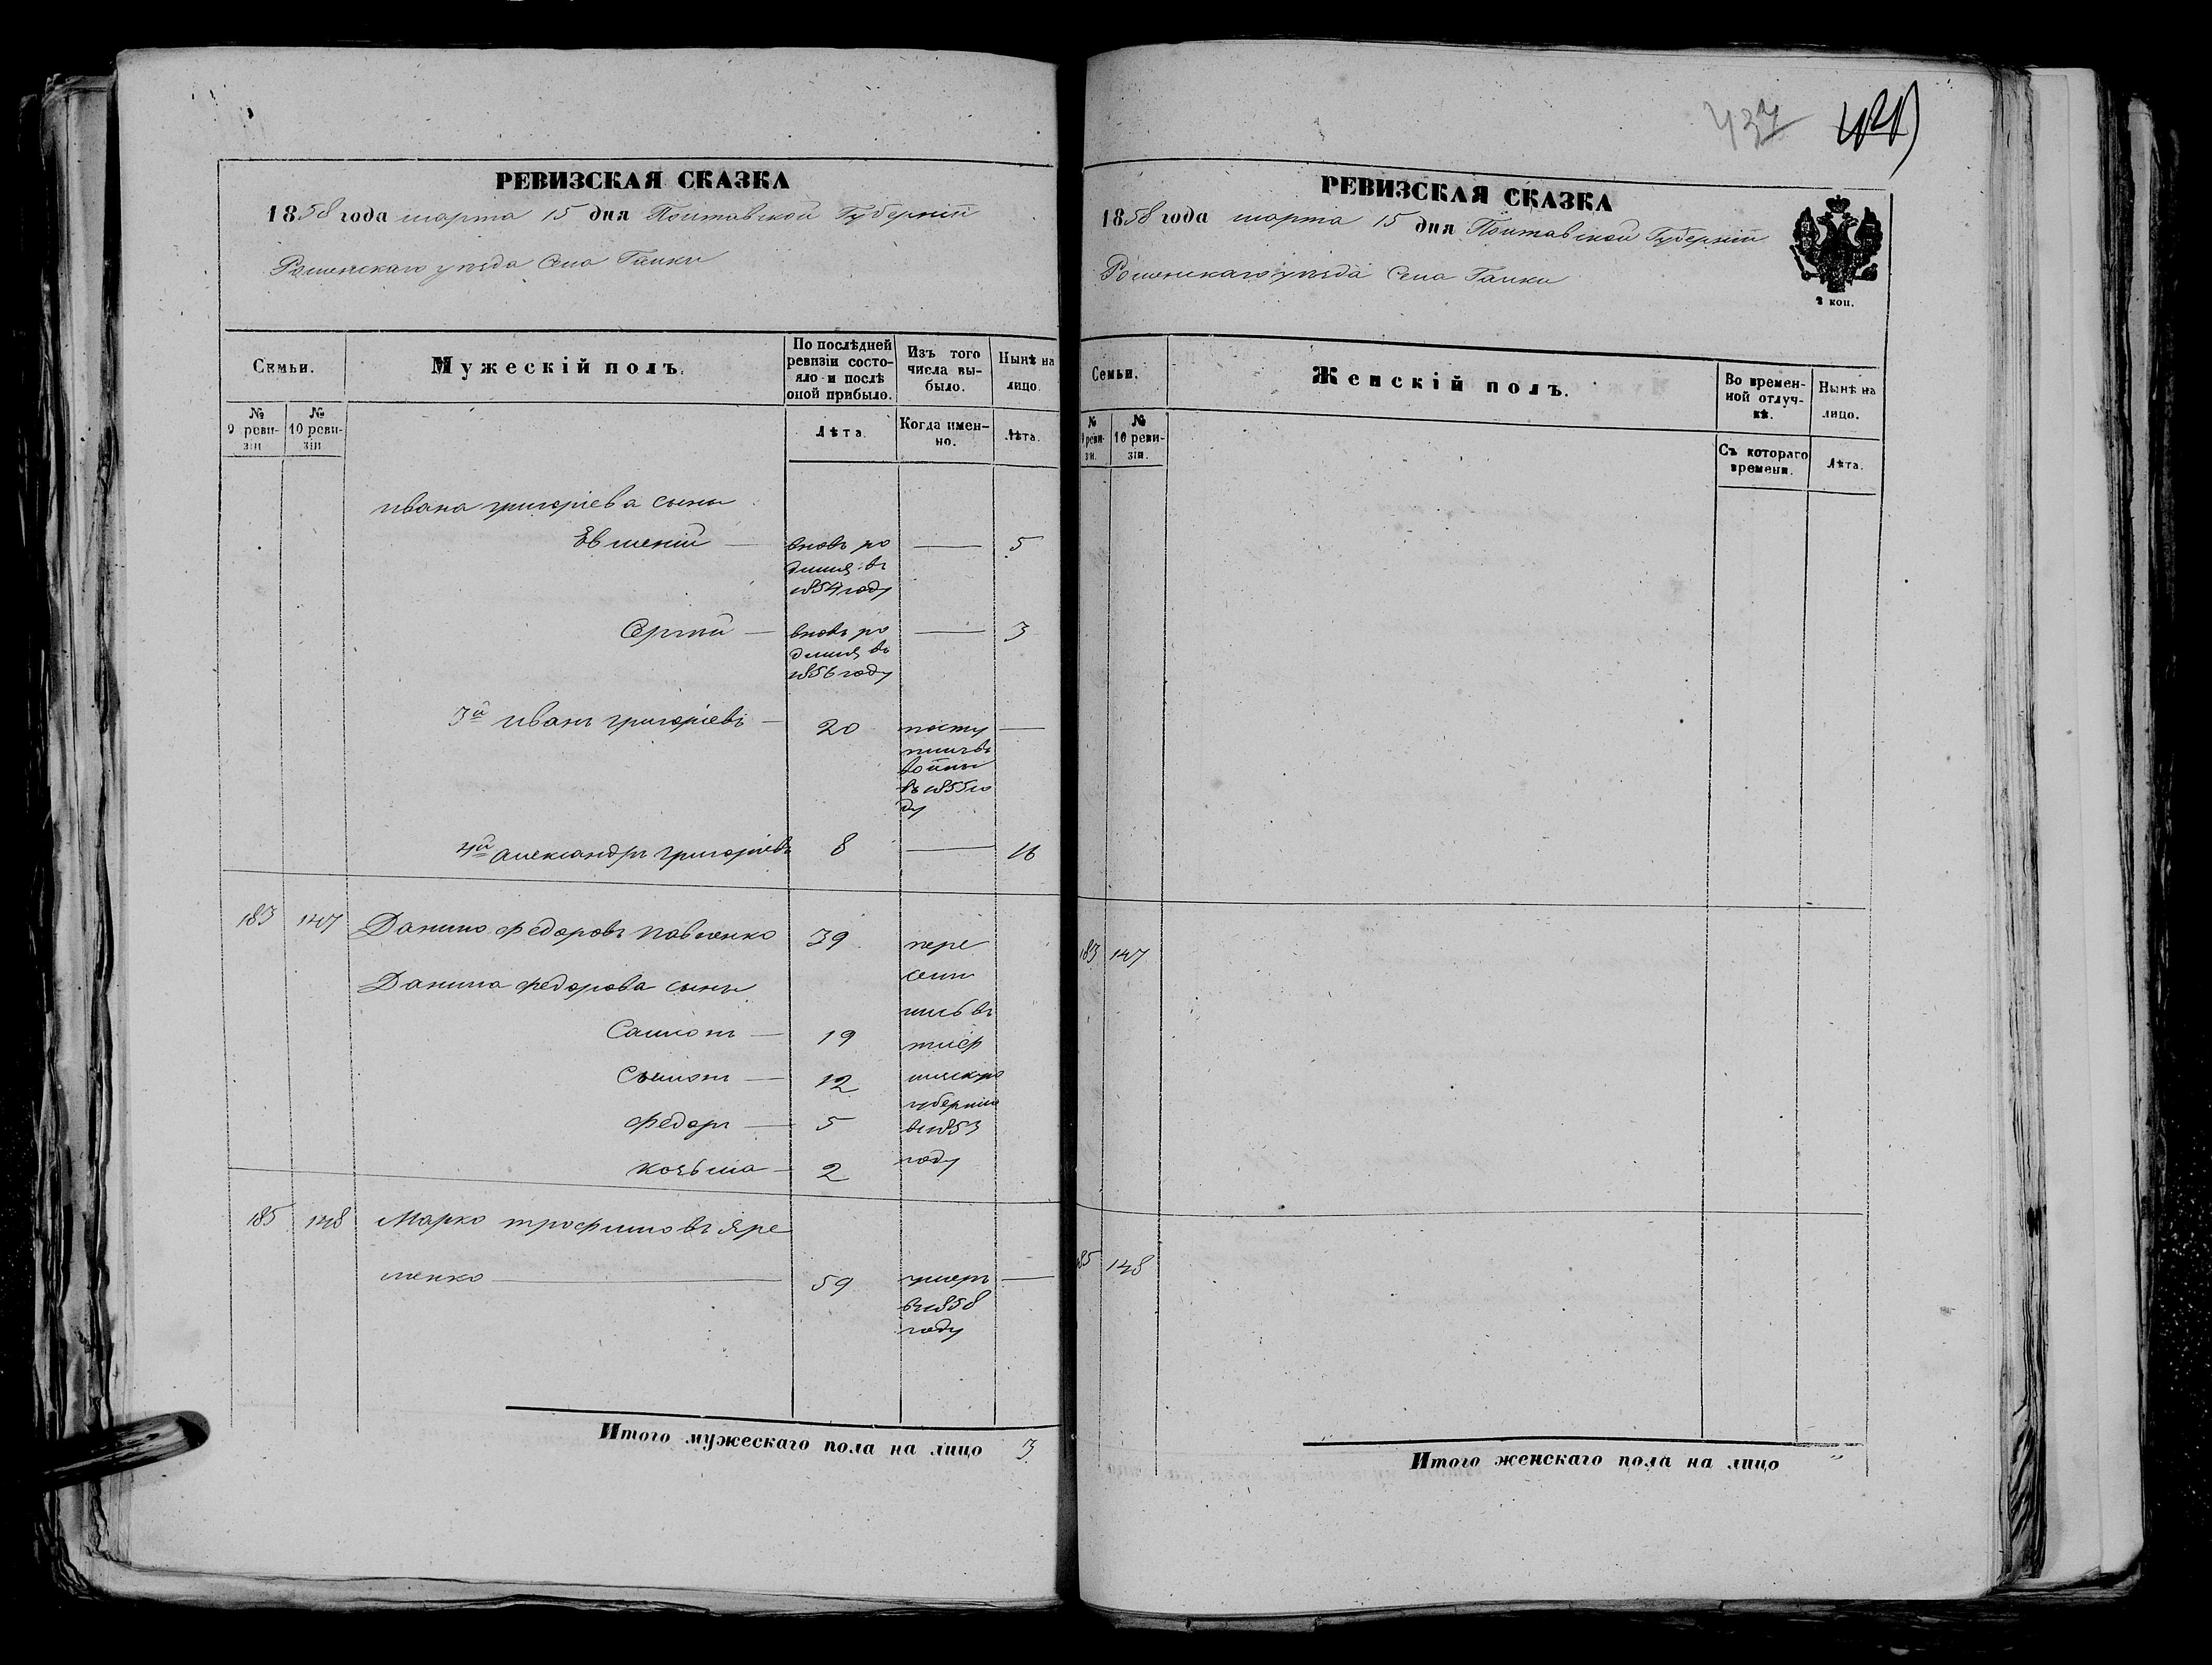 437
РЕВИЗСКАЯ СКАЗКА
1858 года марта 15 дня Полтавской Губерніи
Роменскаго уезда Села Галки
Семьи.
Мужескій полъ.
По послѣдней ревизіи состо-
яло и послѣ
оной прибыло.
Изъ того
числа вы-
было.
Нынѣ на
лицо.
№
9 реви-
зіи
№
10 реви-
зіи
Лѣта.
Когда имен-
но.
Лѣта.
ивана григоріева сыны
Евменій
вновь ро
дился въ
1854 году
5
Сергій
вновь ро
дился въ
1856 году
3
3й иванъ григоріевъ
20
посту
пилъ въ
1855 го
ду
4й александръ григоріевъ 8 16
183 147 Данило федоровъ павленко 39
пере
сели
лись въ
губернію
въ 1853
году
Данила федорова сыны
19
12
федоръ 5
козьма 2
185 148 Марко трофимовъ Яре
менко 59
умеръ
въ 1858
году
Итого мужескаго пола на лицо 3
РЕВИЗСКАЯ СКАЗКА
1858 года марта 15 дня Полтавской Губерніи
Роменскаго уезда Села Галки
2 коп.
Семьи.
Женскій полъ.
Во времен-
ной отлуч-
кѣ.
Нынѣ на
лицо.
№
9 реви-
зи.
№
10 реви-
зіи.
Съ котораго
времени.
Лѣта.
183 147
185 148
Итого женскаго пола на лицо "